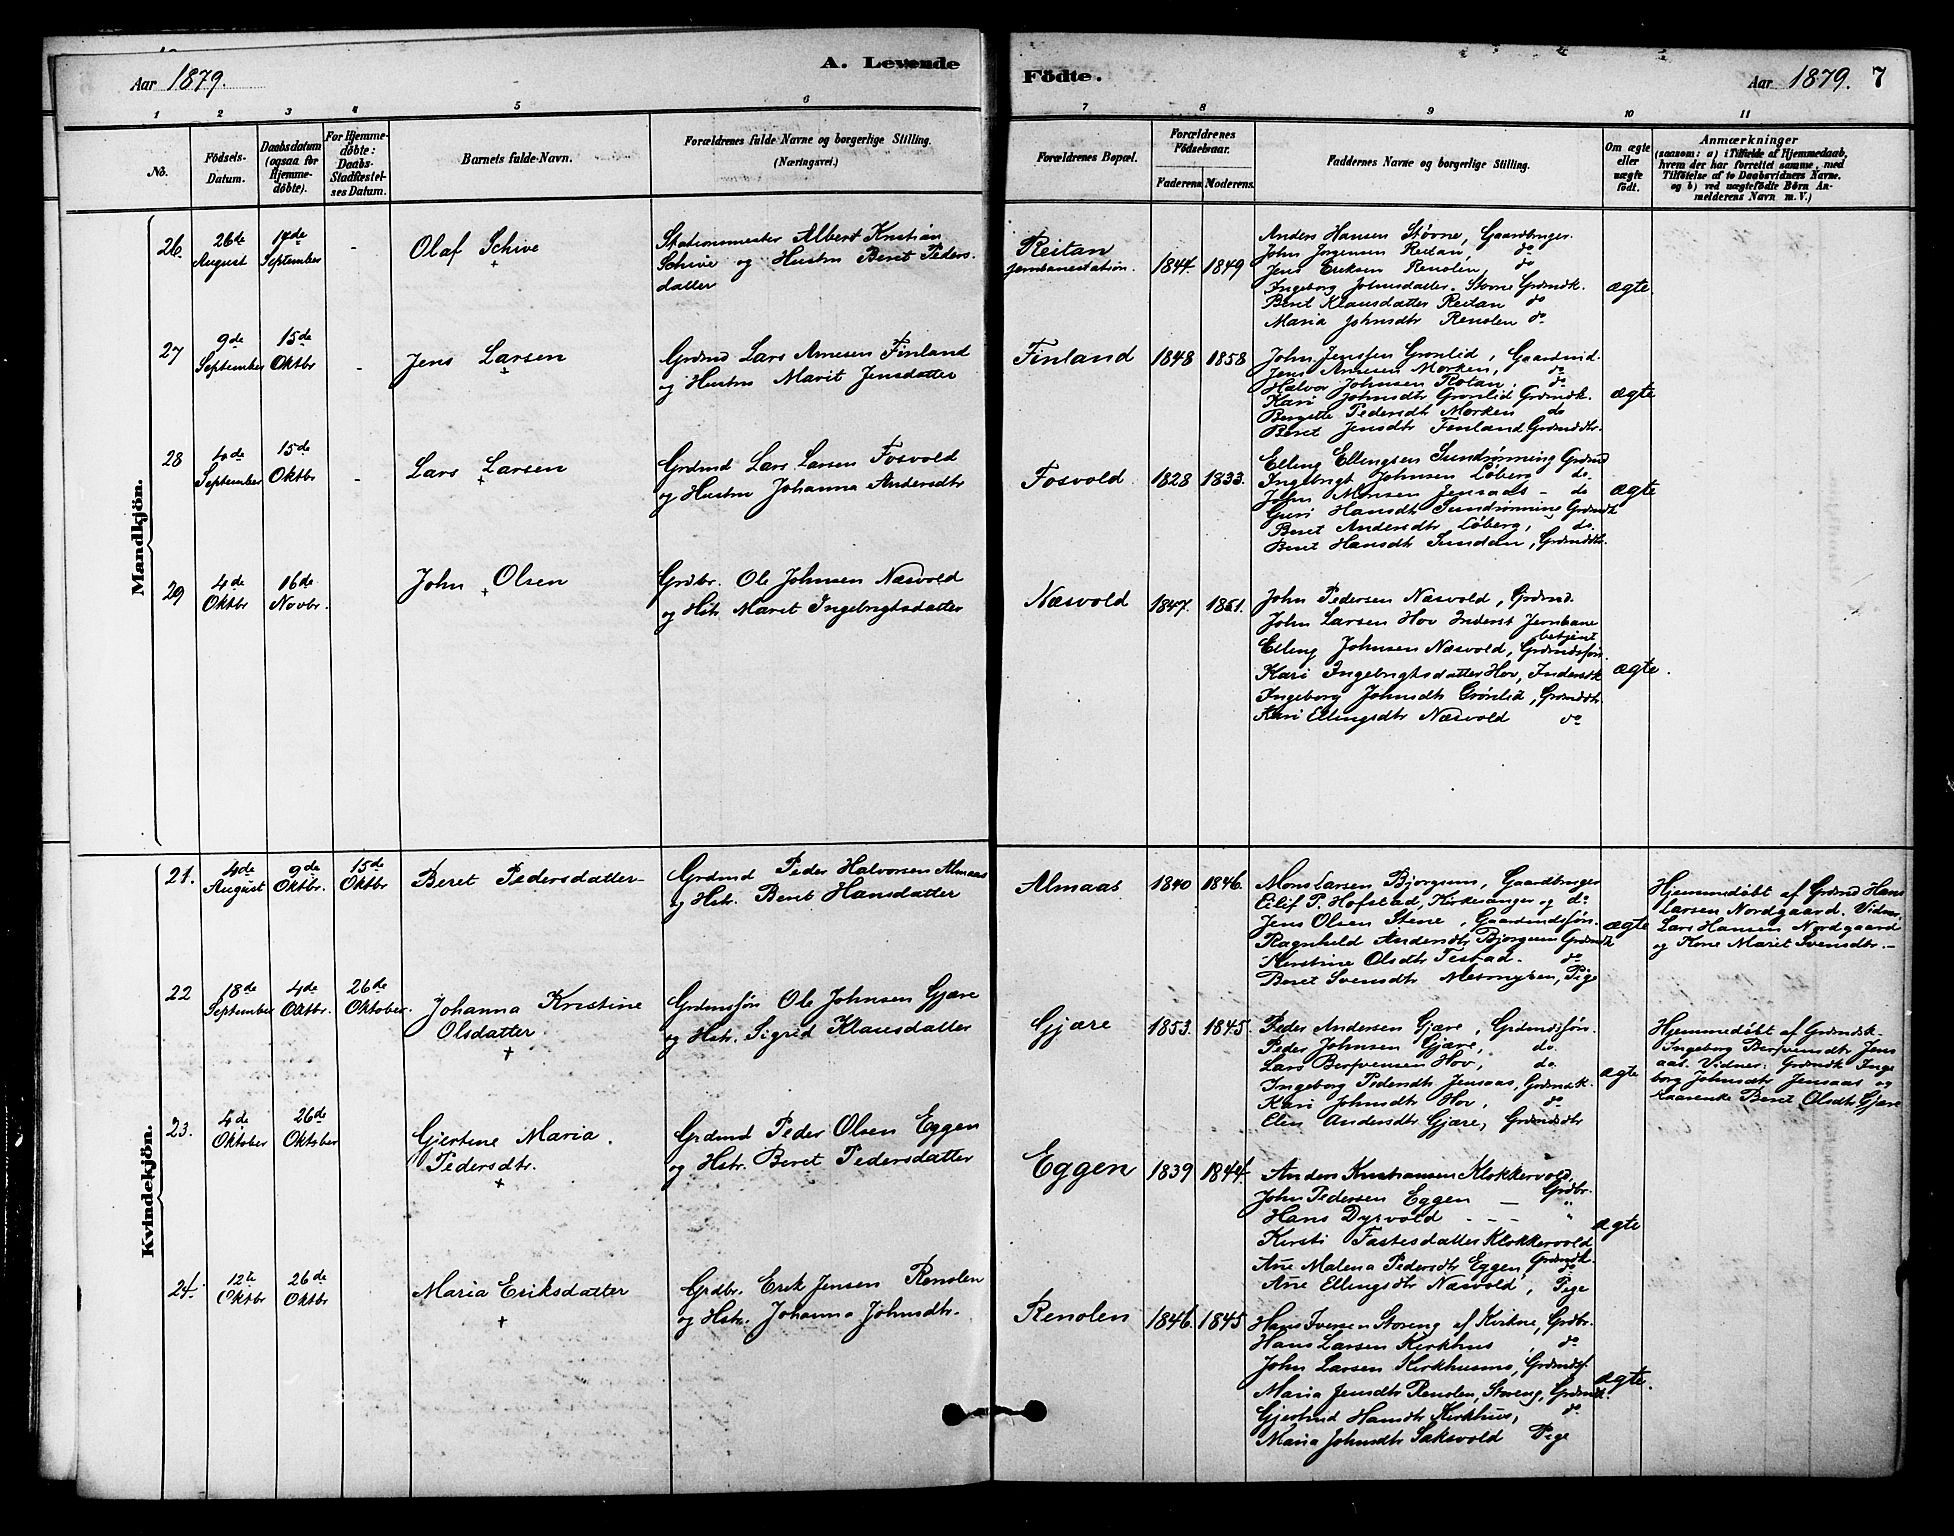 A. Levende
Födte.
Aar 1879.
Aar 1879. 7
1 2 3 4 5 6 7 8 9 10 11
No.
Födsels-
Datum.
Daabsdatum
(ogsaa for
Hjemme-
döbte).
For Hjemme-
döbte:
Daabs-
Stadfæstel-
ses Datum.
Barnets fulde Navn.
Forældrenes fulde Navne og borgerlige Stilling.
(Næringsvei.)
Forældrenes Bopæl.
Forældrenes
Födselsaar.
Faderens. Moderens.
Faddernes Navne og borgerlige Stilling.
Om ægte
eller
uægte
födt.
Anmærkninger
(saasom: a) i Tilfælde af Hjemmedaab,
hvem der har forrettet samme, med
Tilföielse af to Daabsvidners Navne,
og b) ved uægtefödte Börn An-
melderens Navn m. V.)
Mandkjön.
26.
26de
August
14de
September
-
Olaf Schive
+
Stationsmester Albert Kristian
Schive og Hustru Beret Peders-
datter
Reitan
jernbanestation.
1844. 1849
Anders Hansen Støvne, Gaardbruger.
John Jørgensen Reitan, do
Jens Eriksen Renolen, do
Ingeborg Johnsdatter Stovne Grdmdk.
Beret Klausdatter Reitan do
Maria Johnsdtr Renolen do
ægte.
27
9de
September
15de
Oktbr
-
Jens Larsen
+
Grdmd Lars Arnesen Finland
og Hustru Marit Jensdatter
Finland
1848 1858
John Jensen Grønlid, Gaardmd.
Jens Arnesen Morken, do
Halvor Johnsen Rotan, do
Kari Johnsdtr Grønlid Grdmdk.
Bergitte Pedersdtr Morken do
Beret Jensdtr Finland Grdmddtr.
ægte
28
September
15de
Oktbr
-
Lars Larsen
+
Grdmd Lars Larsen Fosvold
og Hustru Johanna Andersdtr
Fosvold
1828 1833.
Elling Ellingsen Sundrønning Grdmd
Ingebrigt Johnsen Løberg do.
John Monsen Jensaas - do
Guri Hansdtr Sundrønning Grdmdk
Beret Andersdtr Løberg, do.
Beret Hansdtr Sundan, Grdmddtr.
ægte
29
4de
Oktbr
16de
Novbr.
John Olsen
+
Grdbr. Ole Johnsen Næsvold
og Hstr. Marit Ingebrigtsdatter
Næsvold
1847. 1851.
John Pedersen Næsvold, Grdmd.
John Larsen Hov Inderst Jernbane
betjent
Elling Johnsen Næsvold, Grdmdsøn.
Kari Ingebrigtsdatter Hov, Inderstk
Ingeborg Johnsdtr Grønlid, Grdmddtr
Kari Ellingsdtr Næsvold do
ægte.
Kvindekjön.
21.
4de
August
9de
Oktbr.
15de
Oktbr
Beret Pedersdatter
Grdmd Peder Halvorsen Almaas
og Hstr. Beret Hansdatter
Almaas
1840 1846.
Mons Larsen Bjørgum, Gaardbruger
Eilif P. Hofstad, Kirkesanger og do.
Jens Olsen Stene, Gaardmdsøn.
Ragnhild Andersdtr Bjørgum Grdmdk
Kerstine Olsdtr Testad. do
Beret Svensdtr Mesmyren, Pige
ægte
Hjemmedøbt af Grdmd Hans
Larsen Nordgaard. Vidner,
Lars Hansen Nordgaard
og Kone Maret Svensdtr. -
22
18de
September
4de
Oktbr.
26de
Oktober.
Johanna Kristine
Olsdatter
+
Grdmdsøn Ole Johnsen Gjære
og Hstr. Sigrid Klausdatter
Gjære
1853. 1845.
Peder Andersen Gjære, Grdmdsøn.
Peder Johnsen Gjære, do.
Lars Berfvensen Hov, do.
Ingeborg Pedersdtr Jensaas, Grdmdk.
Kari Johnsdtr Hov, do
Elen Andersdtr Gjære, Grdmddtr
ægte
Hjemmedøbt af Grdmdk-
Ingeborg Berfvensdtr Jens
aas. Vidner: Grdmdk Inge
borg Johnsdtr Jensaas og
Kaarenke Beret Olsdtr Gjære
23.
4de
Oktober
26de
Oktober
Gjertine Maria
Pedersdtr.
+
Grdmd Peder Olsen Eggen
og Hstr. Beret Pedersdatter
Eggen
1839 1844.
Anders Kristiansen Klokkervold,
Grdbr.
John Pedersen Eggen - "
Hans Dyrvold - - - "
Kirsti Fastesdatter Klokkervold
Grdmdk.
Ane Malena Pedersdtr Eggen, do
Ane Ellingsdtr Næsvold, Pige
ægte
24.
12te
Oktbr
26de
Oktbr
Maria Eriksdatter
+
Grdbr. Erik Jensen Renolen
og Hstr. Johanna Johnsdtr.
Renolen
1846. 1845
Hans Iversen Storeng af Kirkne, Grdbr.
Hans Larsen Kirkhus, do
John Larsen Kirkhusmo, Grdmdsf.
Maria Jensdtr Renolen, Storeng, Grdmdk.
Gjertrud Hansdtr Kirkhus, do
Maria Johnsdtr Saksvold Pige
ægte.